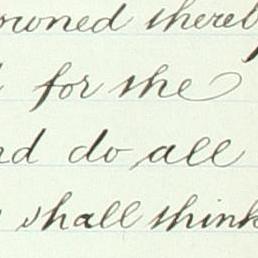 owned thereby
for the
nd do all
shall think